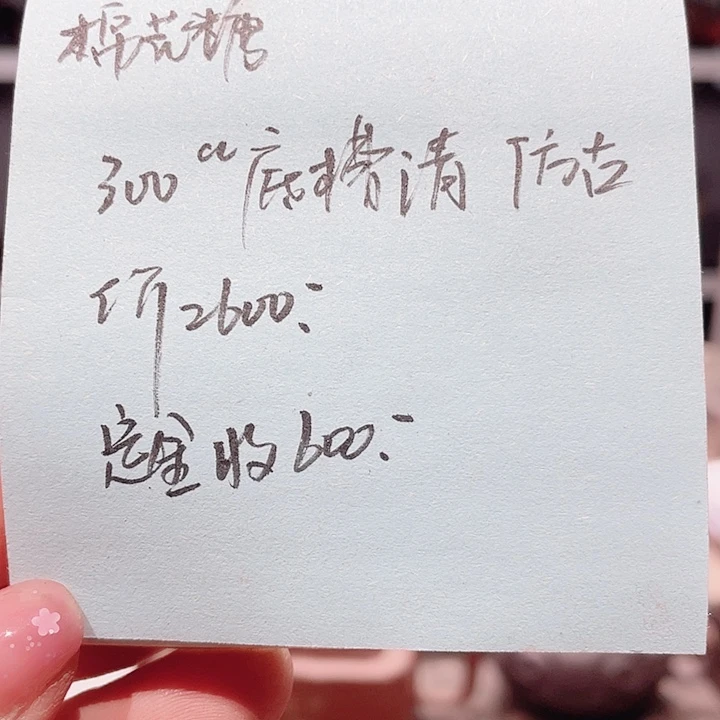 棉花糖
300cc底槽清 仿古
价2600.-
定金收600.-